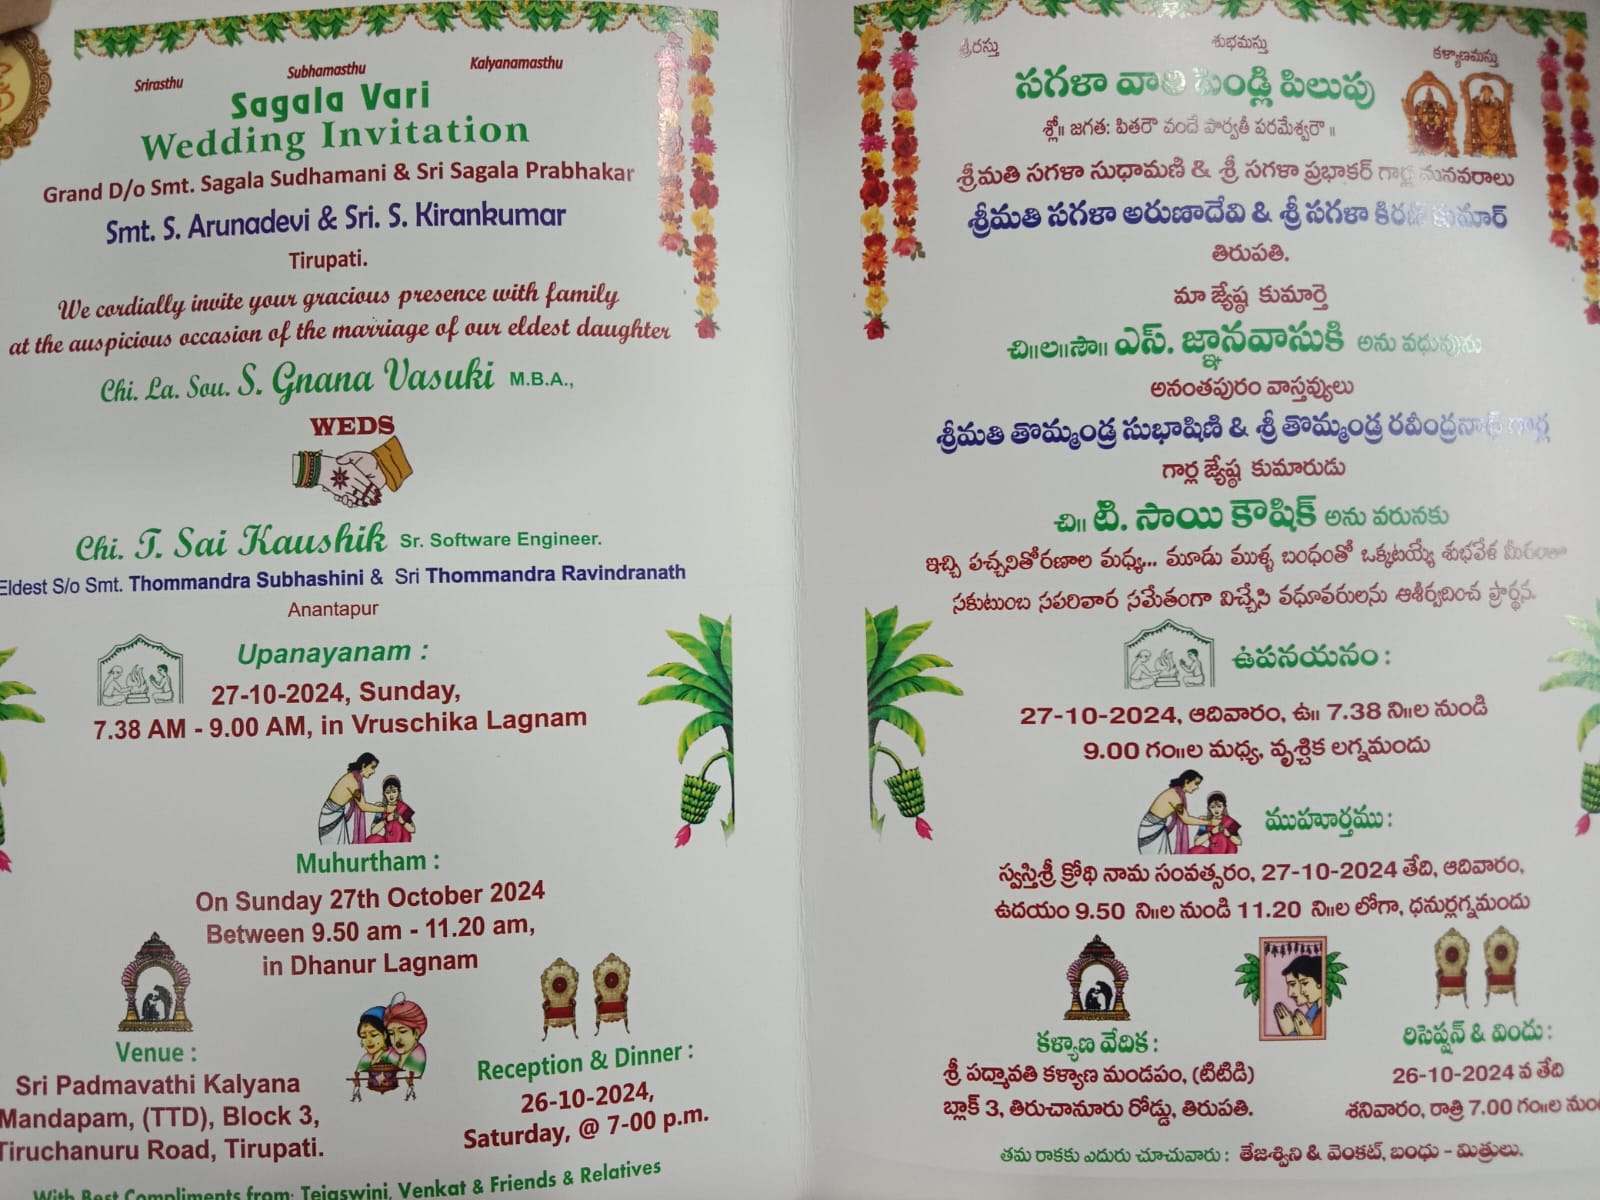 Srirasthu
Subhamasthu
Kalyanamasthu
Sagala Vari
Wedding Invitation
Grand D/o Smt. Sagala Sudhamani & Sri Sagala Prabhakar
Smt. S. Arunadevi & Sri. S. Kirankumar
Tirupati.
We cordially invite your gracious presence with family
at the auspicious occasion of the marriage of our eldest daughter
Chi. La. Sou. S. Gnana Vasuki M.B.A.,
WEDS
Chi. T. Sai Kaushik Sr. Software Engineer.
Eldest S/o Smt. Thommandra Subhashini & Sri Thommandra Ravindranath
Anantapur
Upanayanam :
27-10-2024, Sunday,
7.38 AM - 9.00 AM, in Vruschika Lagnam
Muhurtham :
On Sunday 27th October 2024
Between 9.50 am - 11.20 am,
in Dhanur Lagnam
Venue :
Sri Padmavathi Kalyana
Mandapam, (TTD), Block 3,
Tiruchanuru Road, Tirupati.
Reception & Dinner :
26-10-2024,
Saturday, @ 7-00 p.m.
With Best Compliments from: Tejaswini, Venkat & Friends & Relatives
శ్రీరస్తు
శుభమస్తు
కళ్యాణమస్తు
సగళా వారి పెండ్లి పిలుపు
శ్లో॥ జగత: పితరౌ వందే పార్వతీ పరమేశ్వరౌ ॥
శ్రీమతి సగళా సుధామణి & శ్రీ సగళా ప్రభాకర్ గార్ల మనవరాలు
శ్రీమతి సగళా అరుణాదేవి & శ్రీ సగళా కిరణ్ కుమార్
తిరుపతి.
మా జ్యేష్ఠ కుమార్తె
చి॥ల॥సౌ॥ ఎస్. జ్ఞానవాసుకి అను వధువును
అనంతపురం వాస్తవ్యులు
శ్రీమతి తొమ్మండ్ర సుభాషిణి & శ్రీ తొమ్మండ్ర రవీంద్రనాథ్ గార్ల
గార్ల జ్యేష్ఠ కుమారుడు
చి॥ టి. సాయి కౌషిక్ అను వరునకు
ఇచ్చి పచ్చనితోరణాల మధ్య... మూడు ముళ్ళ బంధంతో ఒక్కటయ్యే శుభవేళ మీరంతా
సకుటుంబ సపరివార సమేతంగా విచ్చేసి వధూవరులను ఆశీర్వదించ ప్రార్థన.
ఉపనయనం :
27-10-2024, ఆదివారం, ఉ॥ 7.38 ని॥ల నుండి
9.00 గం॥ల మధ్య, వృశ్చిక లగ్నమందు
ముహూర్తము :
స్వస్తిశ్రీ క్రోధి నామ సంవత్సరం, 27-10-2024 తేది, ఆదివారం,
ఉదయం 9.50 ని॥ల నుండి 11.20 ని॥ల లోగా, ధనుర్లగ్నమందు
కళ్యాణ వేదిక :
శ్రీ పద్మావతి కళ్యాణ మండపం, (టిటిడి)
బ్లాక్ 3, తిరుచానూరు రోడ్డు, తిరుపతి.
రిసెప్షన్ & విందు :
26-10-2024 వ తేది
శనివారం, రాత్రి 7.00 గం॥ల
తమ రాకకు ఎదురు చూచువారు : తేజశ్విని & వెంకట్, బంధు - మిత్రులు.